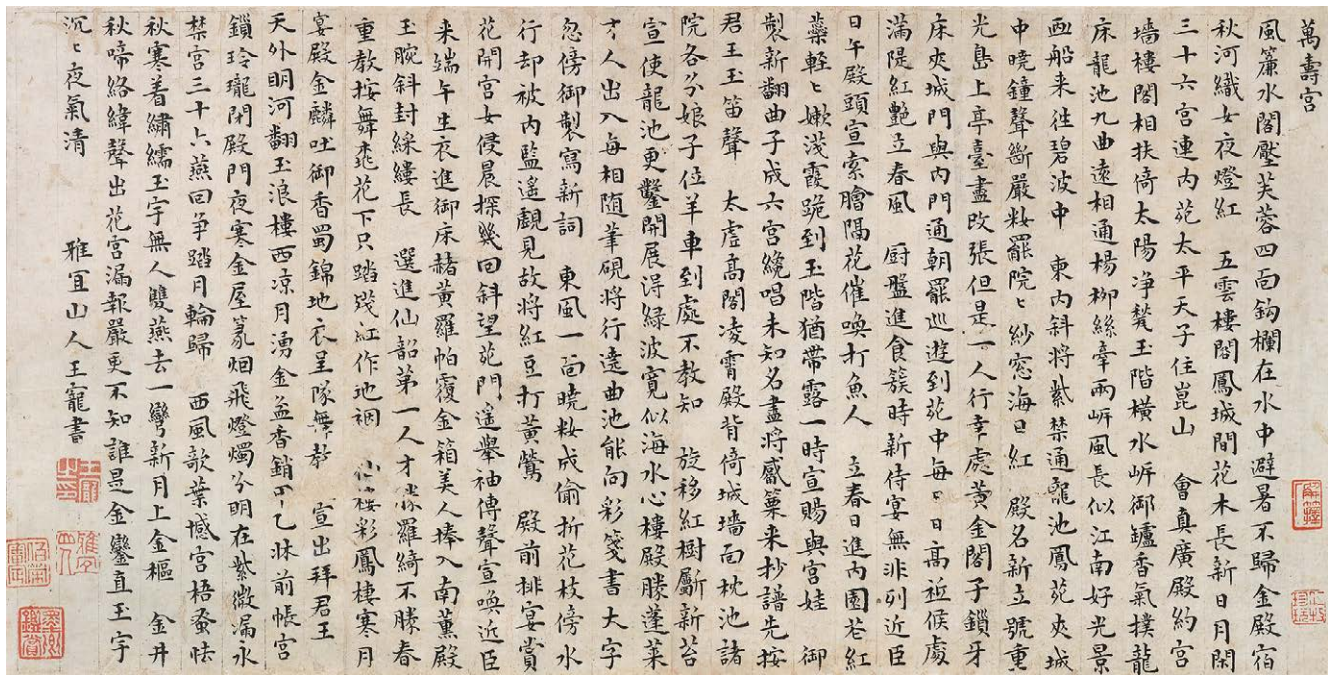 萬壽宮
風簾水閣壓芙蓉四面鈎欄在水中避暑不歸金殿宿
秋河織女夜燈紅 五雲樓閣鳳城間花木長新日月閑
三十六宮連內苑太平天子住崑山 會真廣殿約宮
墻樓閣相扶倚太陽淨甃玉階橫水岍御鑪香氣撲龍
床龍池九曲遠相通楊柳絲牽兩岍風長似江南好光景
畫船来往碧波中 東內斜將紫禁通龍池鳳苑夾城
中曉鐘聲斷嚴粧罷院〻紗窓海日紅 殿名新立號重
光島上亭臺盡改張但是一人行幸處黃金閣子鎖牙
床夾城門與內門通朝罷巡遊到苑中每〻日高祗候處
滿隄紅艷立春風 厨盤進食簇時新侍宴無非列近臣
日午殿頭宣索膾隔花催喚打魚人 立春日進內園花紅
蘂輕〻嫩淺霞跪到玉階猶帶露一時宣賜與宮娃 御
製新翻曲子成六宮纔唱未知名盡將觱篥来抄譜先按
君王玉笛聲 太虛高閣凌霄殿背倚城墻面枕池諸
院各分娘子位羊車到處不教知 旋移紅樹斸新苔
宣使龍池更鑿開展淂綠波寬似海水心樓殿勝蓬莱
才人出入每相隨筆硯將行遶曲池能向彩箋書大字
忽傍御製寫新詞 東風一面曉粧成偷折花枝傍水
行却被內監遙覷見故將紅豆打黃鶯 殿前排宴賞
花開宮女侵晨探幾回斜望苑門遙舉袖傳聲宣喚近臣
来端午生衣進御床赭黃羅帕覆金箱美人捧入南薰殿
玉腕斜封綵縷長 選進仙韶第一人才勝羅綺不勝春
重教按舞桃花下只踏殘紅作地裀 小樓彩鳳棲寒月
宴殿金麟吐御香蜀錦地衣呈隊舞教 宣出拜君王
天外明河翻玉浪樓西涼月湧金盆香銷甲乙牀前帳宮
鎖玲瓏閉殿門夜寒金屋篆烟飛燈燭分明在紫微漏水
禁宮三十六燕回爭踏月輪歸 西風歌葉撼宮梧蚤怯
秋寒着繡襦玉宇無人雙燕去一彎新月上金樞 金井
秋啼絡緯聲出花宮漏報嚴更不知誰是金鑾直玉宇
沉〻夜氣清 雅宜山人王寵書